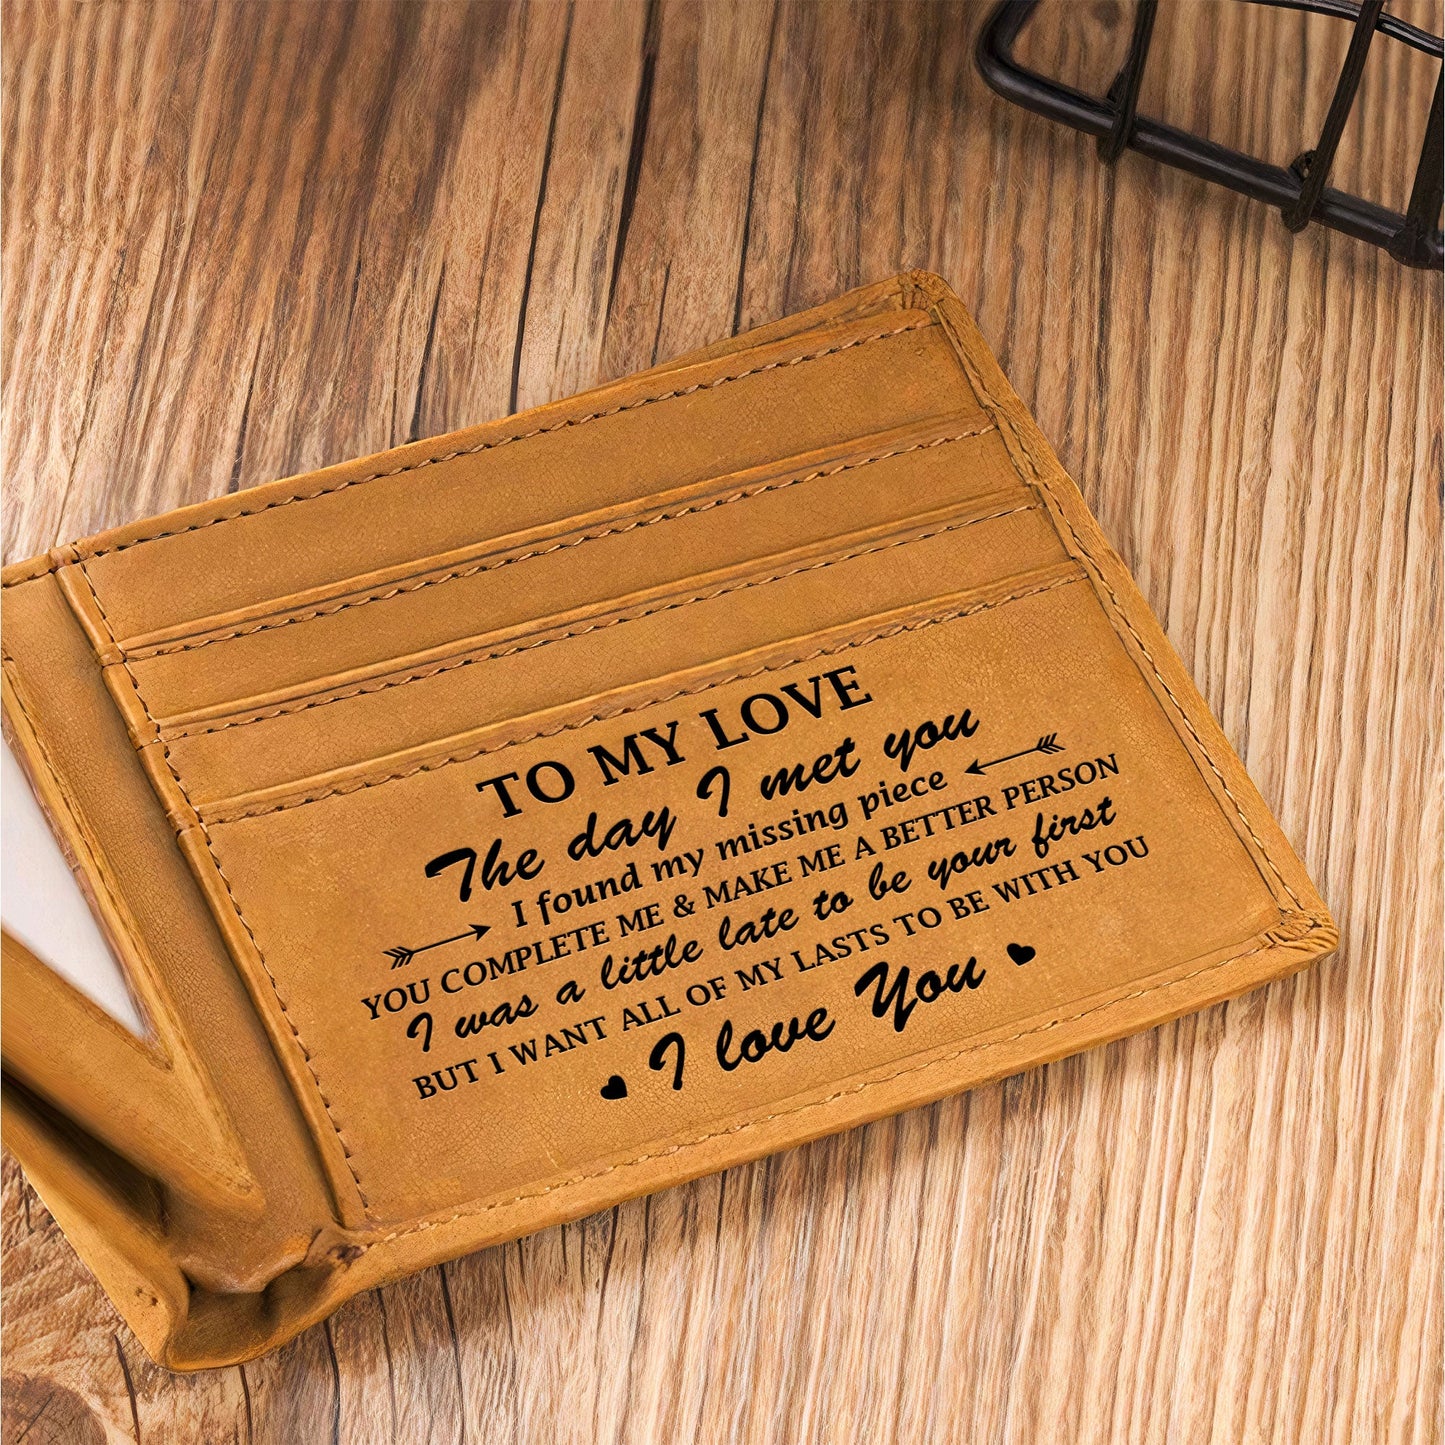 TO MY LOVE
The day I met you
I found my missing piece
YOU COMPLETE ME & MAKE ME A BETTER PERSON
I was a little late to be your first
BUT I WANT ALL OF MY LASTS TO BE WITH YOU
I love You